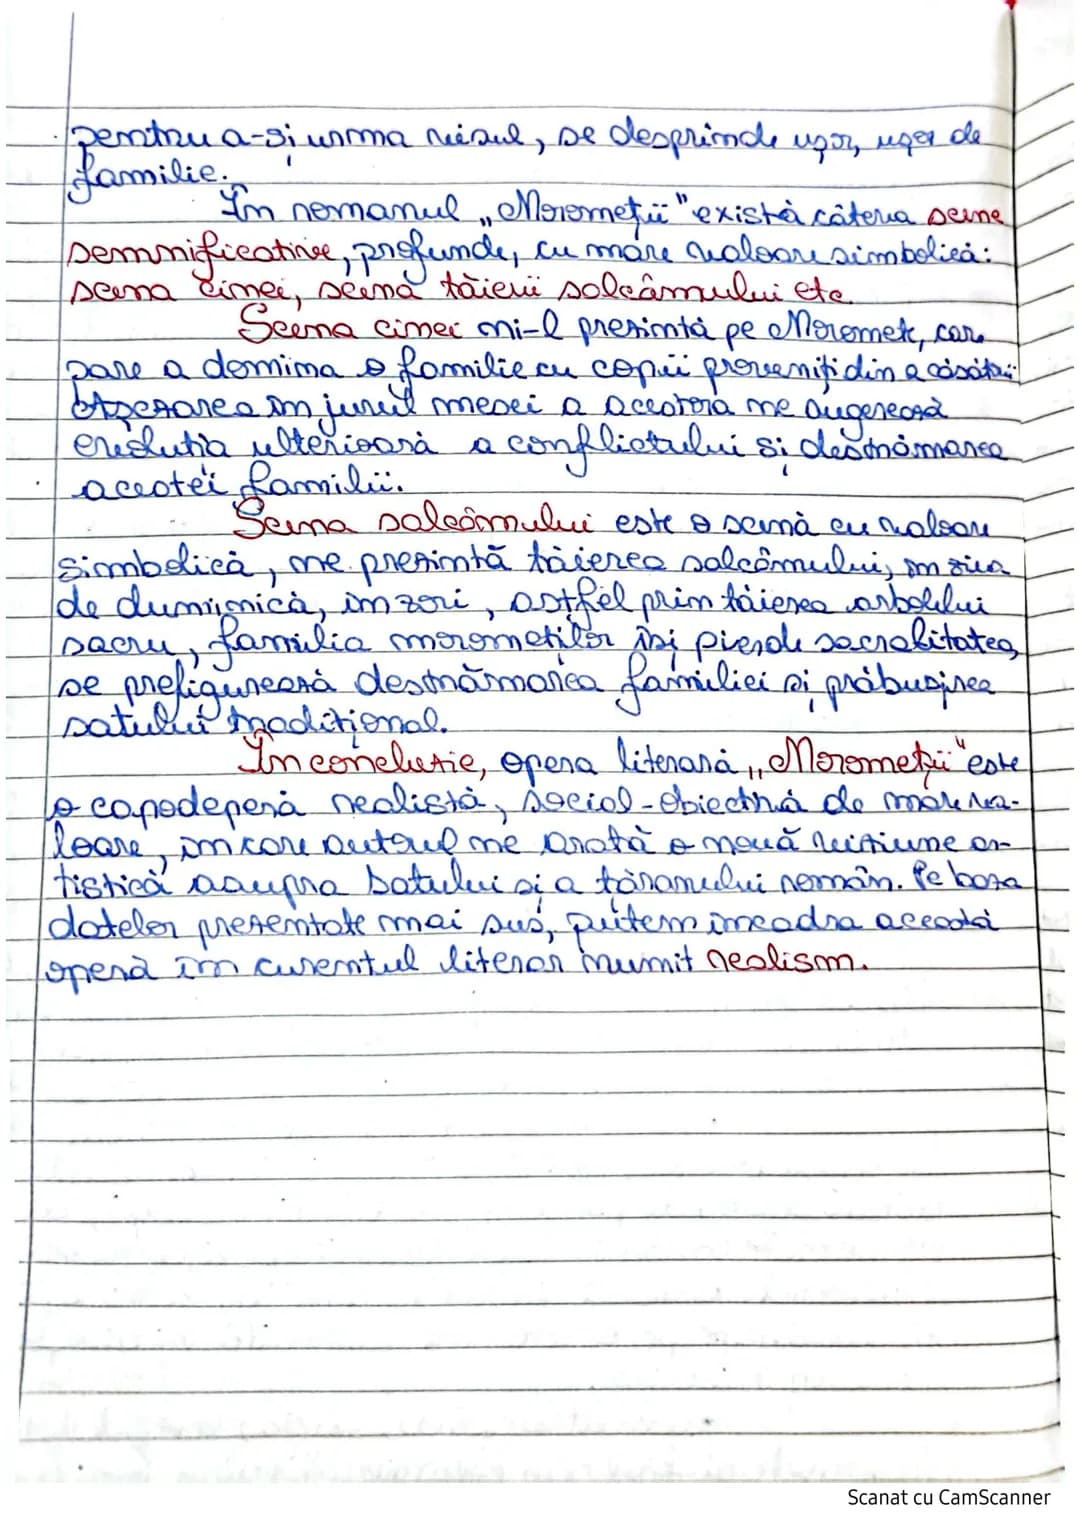 pentru a-și urma visul, se desprinde ușor, ușor de
familie.
În romanul „Moromeții" există câteva scene
semnificative, profunde, cu mare valoare simbolică:
scena cinei, scena tăierii salcâmului etc
Scena cinei ni-l prezintă pe Moromete, care
pare a domina o familie cu copii proveniți din 2 căsătorii
Așezarea în jurul mesei a acestora ne sugerează
evoluția ulterioară a conflictului și destrămarea
acestei familii.
Scena salcâmului este o scenă cu valoare
simbolică, ne prezintă tăierea salcâmului, în ziua
de duminică, în zori, astfel prin tăierea arbolelui
sacru, familia moromeților își pierde sacralitatea,
se prefigurează destrămarea familiei și prăbușirea
satului tradițional.
În concluzie, opera literară „Moromeții" este
o capodeperă realistă, social-obiectivă de mare va-
loare, în care autorul ne arată o nouă viziune ar-
tistică asupra satului și a țăranului român. Pe baza
datelor prezentate mai sus, putem încadra această
operă în curentul literar numit realism.
Scanat cu CamScanner